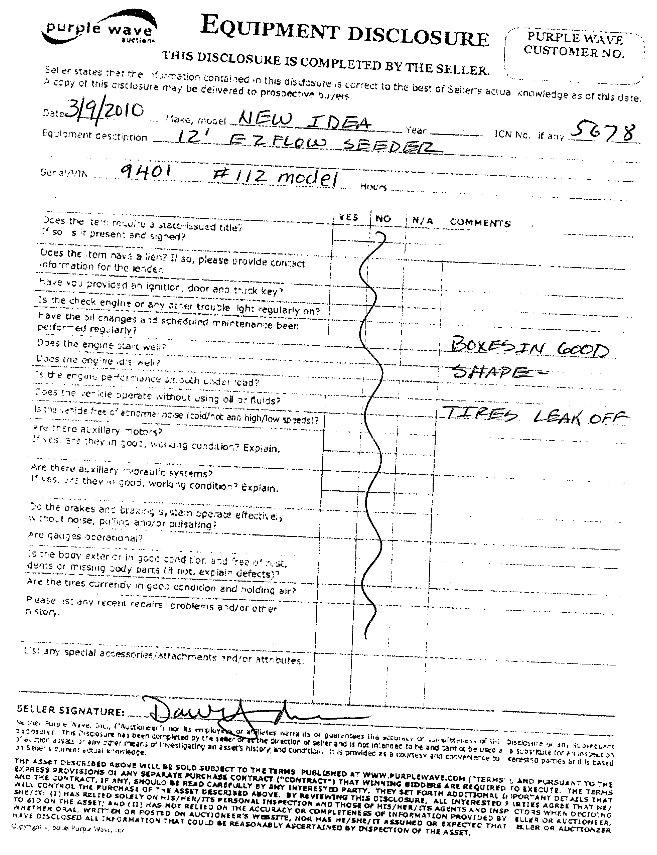 purple wave
auction
EQUIPMENT DISCLOSURE
PURPLE WAVE
CUSTOMER NO.
THIS DISCLOSURE IS COMPLETED BY THE SELLER.
Seller states that the information contained in this disclosure is correct to the best of Seller's actual knowledge as of this date.
A copy of this disclosure may be delivered to prospective buyers.
Date 3/9/2010 Make, model NEW IDEA Year ICN No. if any 5678
Equipment description 12' EZFLOW SEEDER
Serial/VIN 9401 #112 model Hours
YES NO N/A COMMENTS
Does the item require a state-issued title?
If so is it present and signed?
Does the item have a lien? If so, please provide contact
information for the lender.
Have you provided an ignition, door and truck key?
Is the check engine or any other trouble light regularly on?
Have the oil changes and scheduled maintenance been
performed regularly?
Does the engine start well?
BOXES IN GOOD
Does the engine idle well?
SHAPE-
Is the engine performance smooth under load?
Does the vehicle operate without using oil or fluids?
Is the vehicle free of abnormal noise (cold/hot and high/low speeds)?
TIRES LEAK OFF
Are there auxiliary motors?
If yes, are they in good, working condition? Explain.
Are there auxiliary hydraulic systems?
If yes, are they in good, working condition? Explain.
Do the brakes and braking system operate effectively
without noise, pulling and/or pulsating?
Are gauges operational?
Is the body exterior in good condition and free of rust,
dents or missing body parts (if not, explain defects)?
Are the tires currently in good condition and holding air?
Please list any recent repairs, problems and/or other
history.
List any special accessories/attachments and/or attributes.
SELLER SIGNATURE:
Neither Purple Wave, Inc., ("Auctioneer") nor its employees or affiliates warrants or guarantees the accuracy or completeness of this Disclosure or any subsequent
disclosure. This Disclosure has been completed by the seller or at the direction of seller and is not intended to be and cannot be used as a substitute for an inspection
of auction assets or any other means of investigating an asset's history and condition. It is provided as a courtesy and convenience to interested parties and is based
on Seller's current actual knowledge.
THE ASSET DESCRIBED ABOVE WILL BE SOLD SUBJECT TO THE TERMS PUBLISHED AT WWW.PURPLEWAVE.COM ("TERMS"), AND PURSUANT TO THE
EXPRESS PROVISIONS OF ANY SEPARATE PURCHASE CONTRACT ("CONTRACT") THAT WINNING BIDDERS ARE REQUIRED TO EXECUTE. THE TERMS
AND THE CONTRACT, IF ANY, SHOULD BE READ CAREFULLY BY ANY INTERESTED PARTY. THEY SET FORTH ADDITIONAL IMPORTANT DETAILS THAT
WILL CONTROL THE PURCHASE OF THE ASSET DESCRIBED ABOVE. BY REVIEWING THIS DISCLOSURE, ALL INTERESTED PARTIES AGREE THAT HE/
SHE/IT: (I) HAS RELIED SOLELY ON HIS/HER/ITS PERSONAL INSPECTION AND THOSE OF HIS/HER/ITS AGENTS AND INSPECTORS WHEN DECIDING
TO BID ON THE ASSET; AND (II) HAS NOT RELIED ON THE ACCURACY OR COMPLETENESS OF INFORMATION PROVIDED BY SELLER OR AUCTIONEER,
WHETHER ORAL, WRITTEN OR POSTED ON AUCTIONEER'S WEBSITE, NOR HAS HE/SHE/IT ASSUMED OR EXPECTED THAT SELLER OR AUCTIONEER
HAVE DISCLOSED ALL INFORMATION THAT COULD BE REASONABLY ASCERTAINED BY INSPECTION OF THE ASSET.
Copyright Purple Wave, Inc.